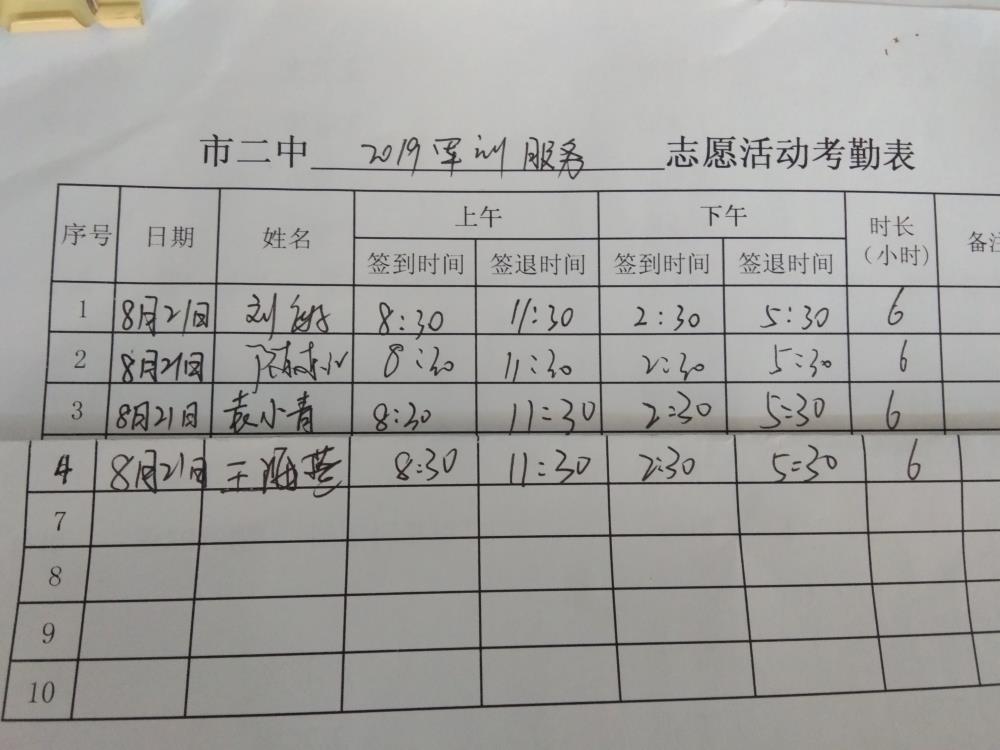 市二中 2019军训服务 志愿活动考勤表
序号 日期 姓名 上午 下午 时长(小时) 备注
签到时间 签退时间 签到时间 签退时间
1 8月21日 刘 8:30 11:30 2:30 5:30 6
2 8月21日 8:30 11:30 2:30 5:30 6
3 8月21日 袁小青 8:30 11:30 2:30 5:30 6
4 8月21日 王 8:30 11:30 2:30 5:30 6
7
8
9
10